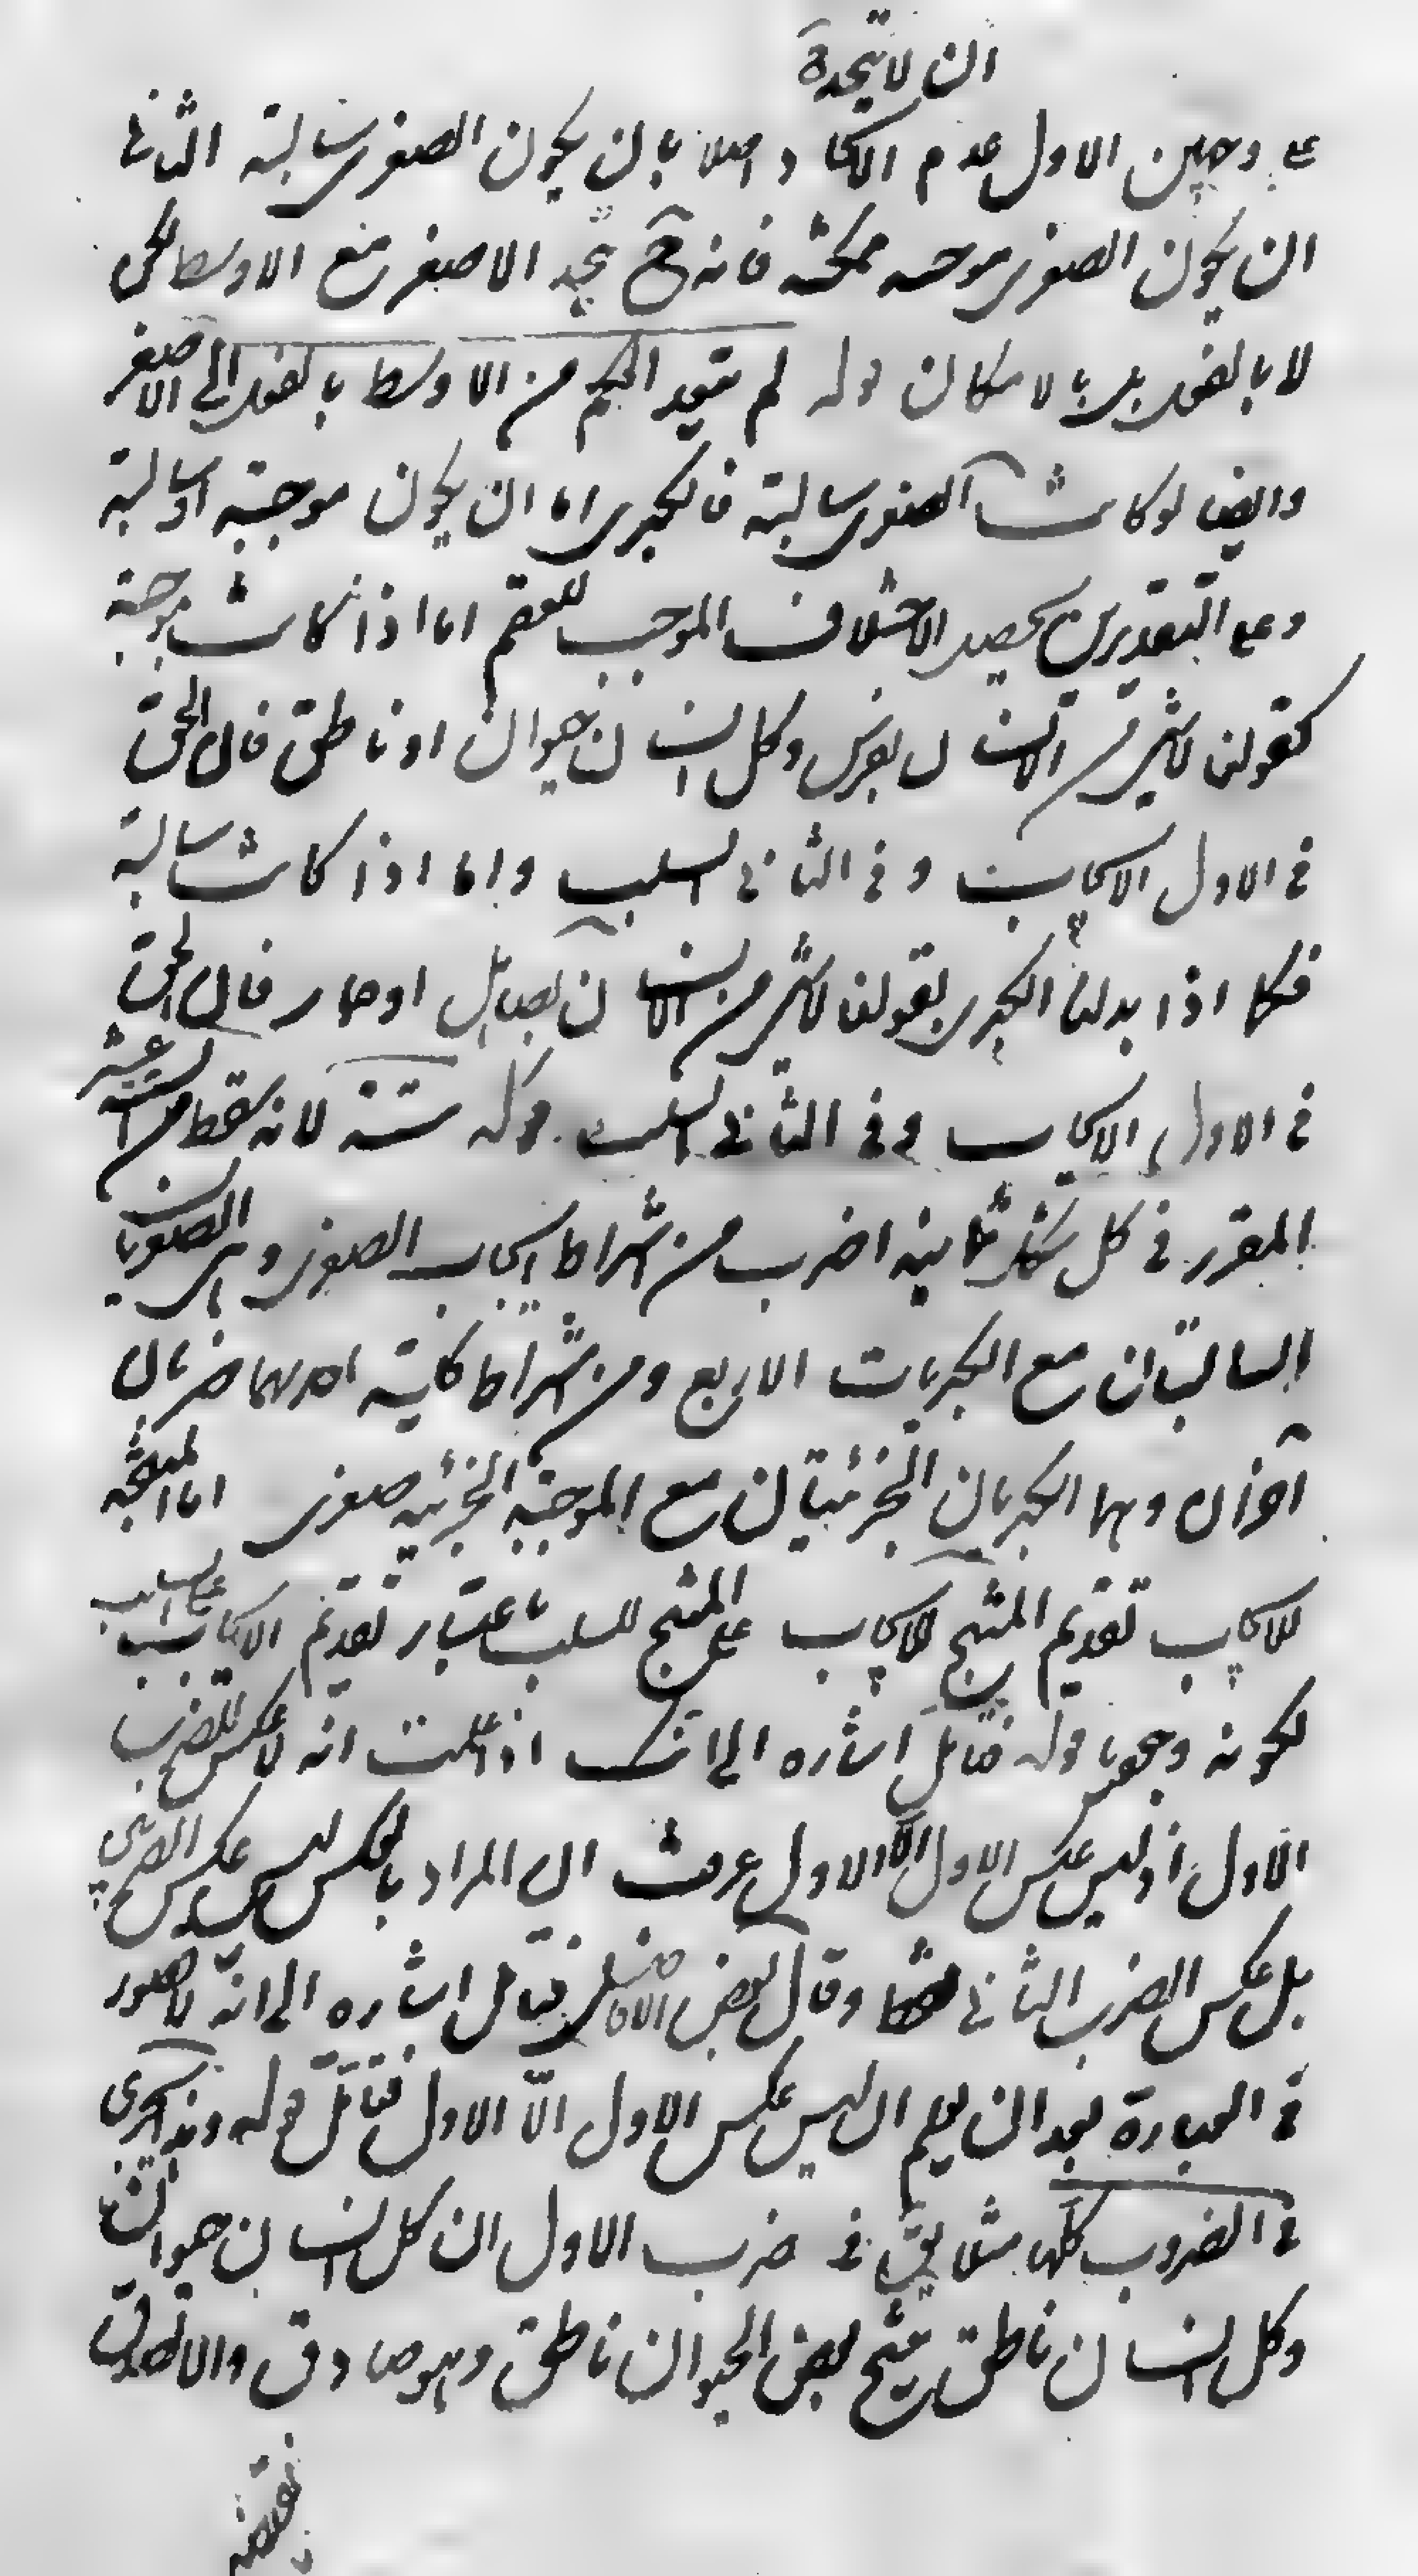 ان لا يتحدة
على وجهين الاول عدم الاتحاد اصلا بان يكون الصغرى سالبة الثانى
ان يكون الصغرى موجبه ممكنه فانه ح يتحد الاصغر مع الاوسط لكن
لا بالفعل بل بالامكان قوله لم يتعد الحكم من الاوسط بالفعل الى الاصغر
وايضا لو كانت الصغرى سالبة فالكبرى اما ان يكون موجبة او سالبة
وعلى التقديرين يحصل الاختلاف الموجب للعقم اما اذا كانت موجبة
كقولنا لا شئ من الانسان بفرس وكل انسان حيوان او ناطق فان الحق
فى الاول الايجاب وفى الثانى السلب واما اذا كانت سالبة
فكما اذا بدلنا الكبرى بقولنا لا شئ من الانسان بصاهل او حمار فان الحق
فى الاول الايجاب وفى الثانى السلب قوله ستة لانه سقط من الستة عشر
المقرر فى كل شكل ثمانية اضرب من اشتراط ايجاب الصغرى وهى الصغريان
السالبتان مع الكبريات الاربع ومن اشتراط كلية احدهما ضربان
آخران وهما الكبريان الجزئيتان مع الموجبة الجزئيه صغرى اما المنتجه
للايجاب تقديم المنتج للايجاب على المنتج للسلب باعتبار تقديم الايجاب على السلب
لكونه وجوديا قوله فتامل اشاره الى انك اذا علمت انه لا عكس للضرب
الاول اذ ليس عكس الاول الا الاول عرفت ان المراد بالعكس ليس عكس الضرب
بل عكس الضرب الثانى وقال بعض الافاضل فتامل اشاره الى انه لا قصور
فى العبارة بعد ان يعلم ان ليس عكس الاول الا الاول فتامل قوله وهذا يجرى
فى الضروب كلها مثلا يق فى ضرب الاول ان كل انسان حيوان
وكل انسان ناطق ينتج بعض الحيوان ناطق وهو صادق والا لصدق
نقيضه